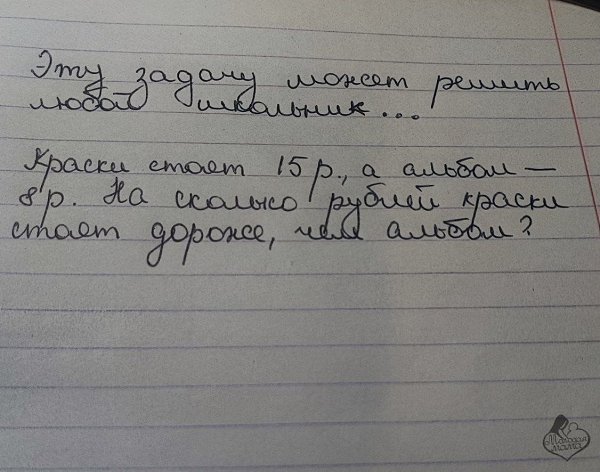 Эту задачу может решить
любой школьник...
Краски стоет 15р., а альбом —
8р. На сколько рублей краски
стоет дороже, чем альбом?
Молодая
мама